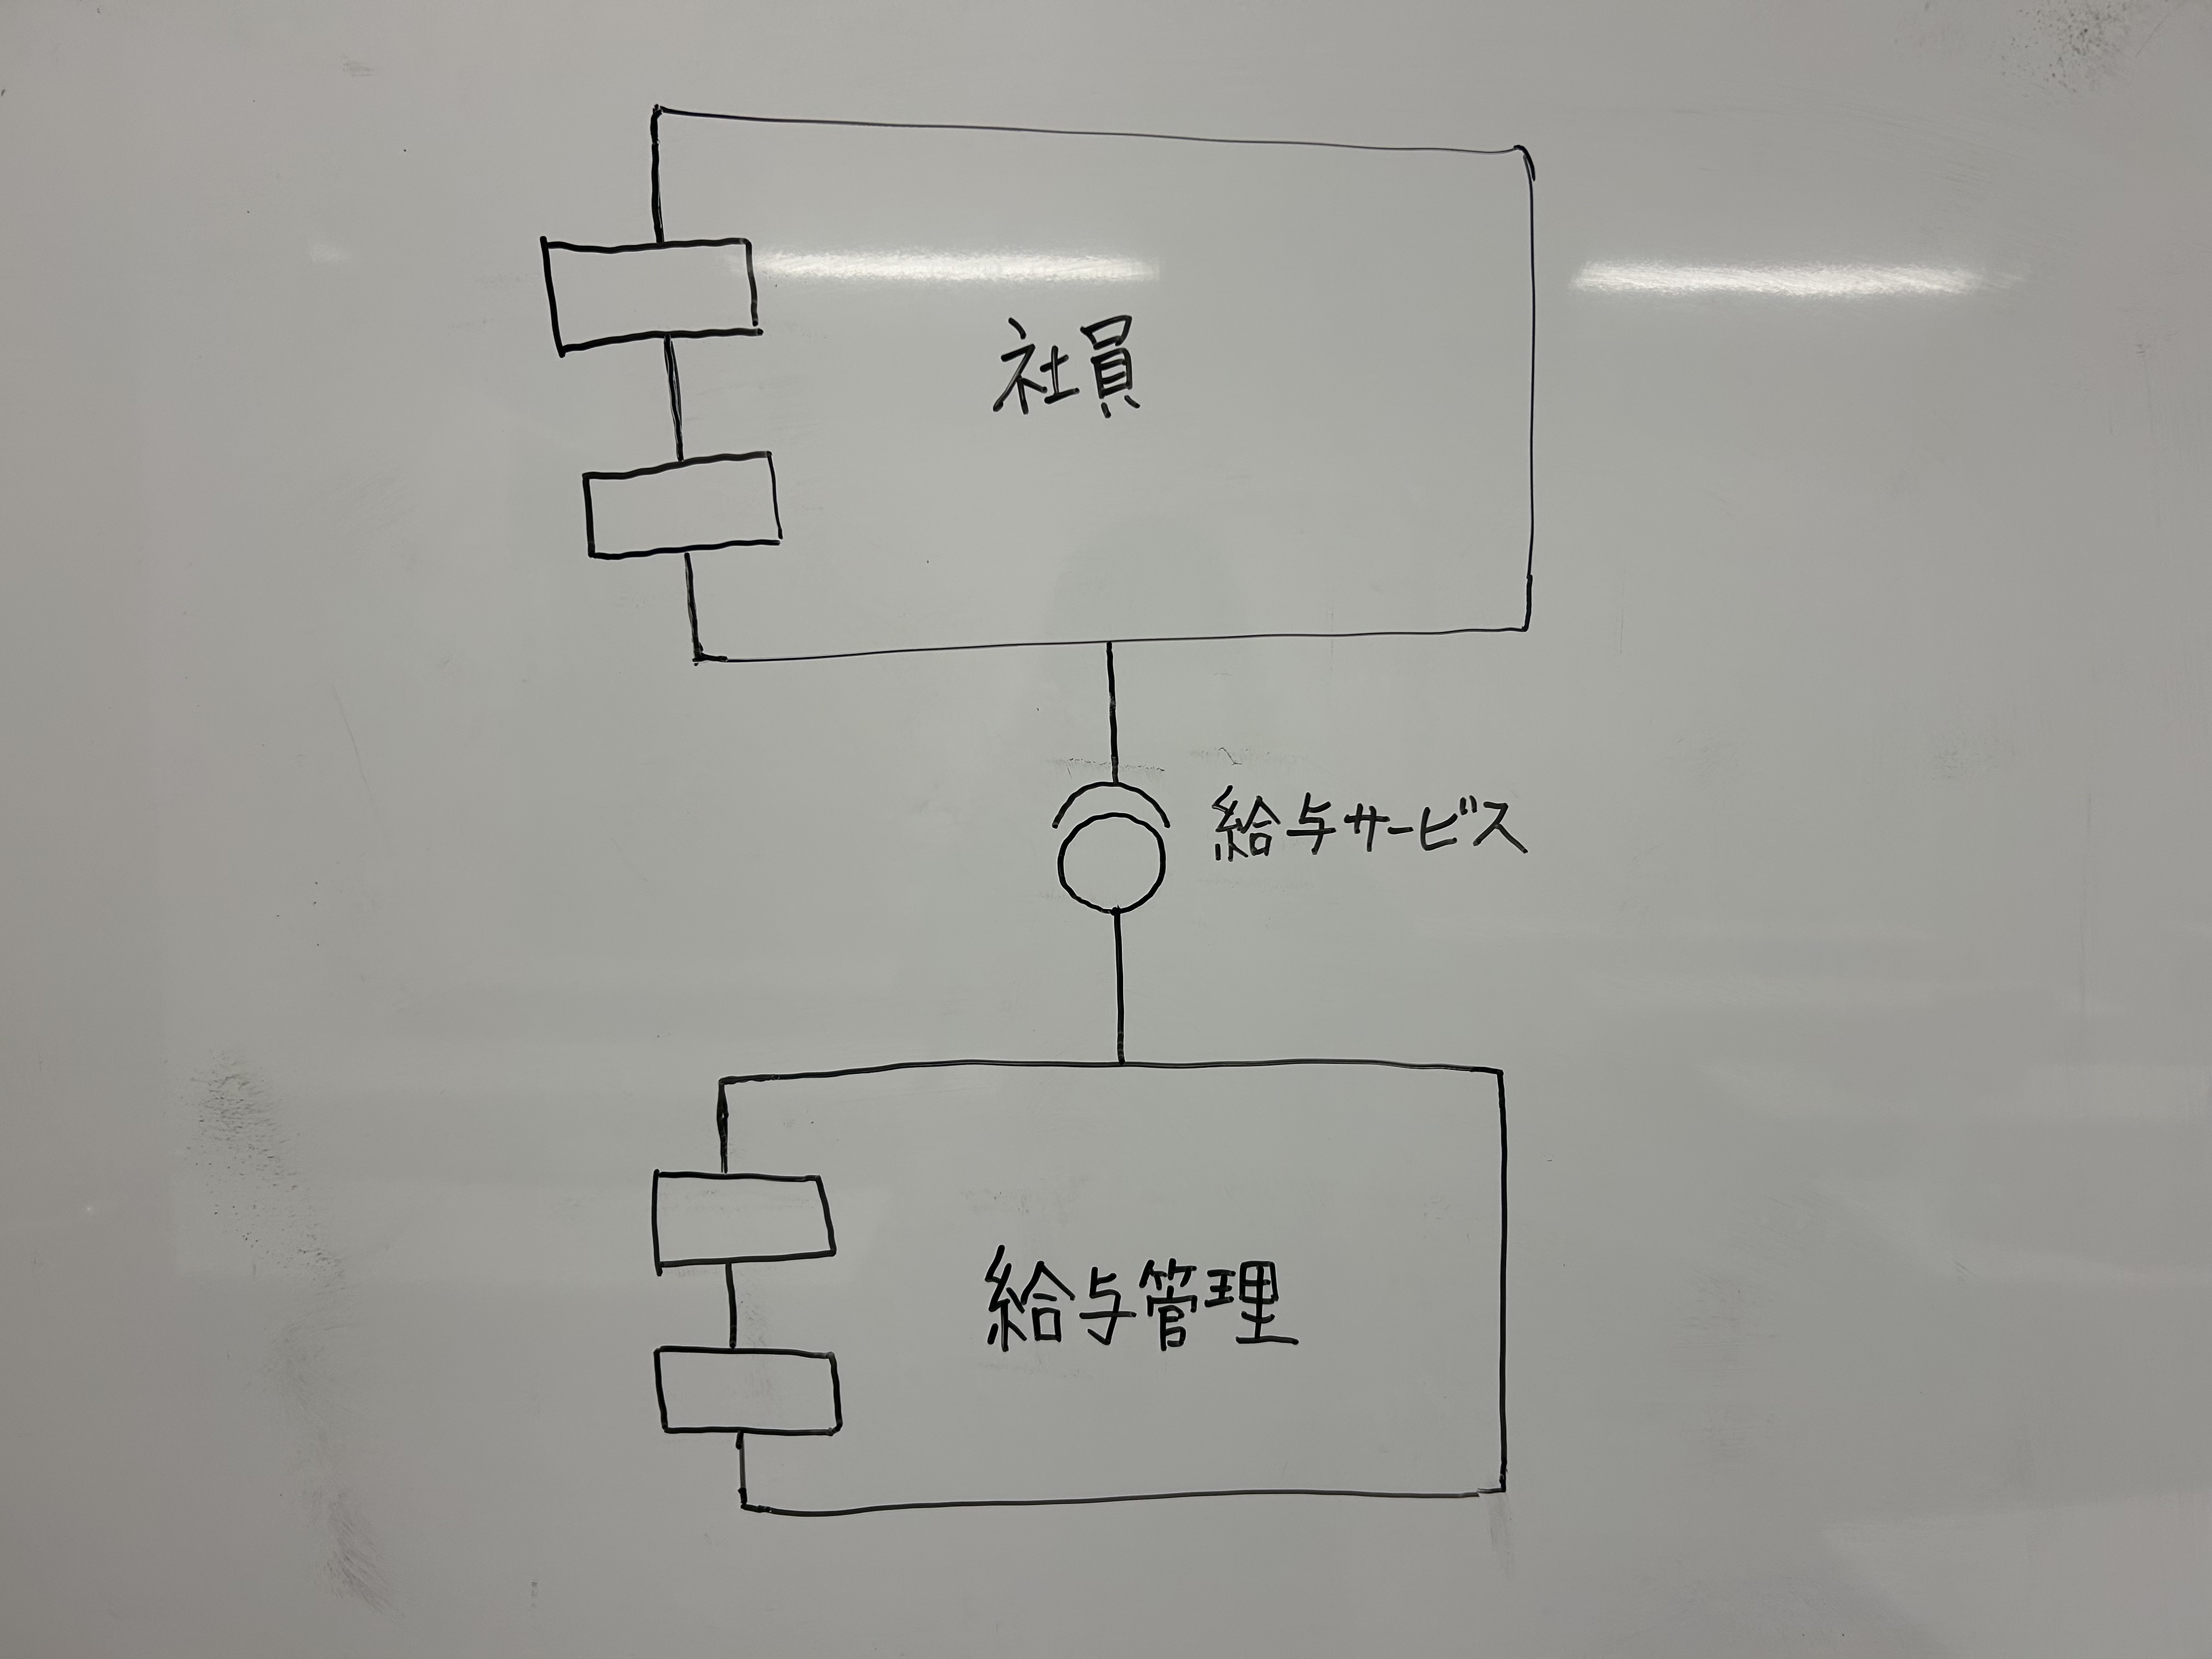 社員
給与サービス
給与管理